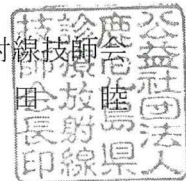 射線技師会
田 睦
公益社団法人
鹿児島県
診療放射線
技師会長印